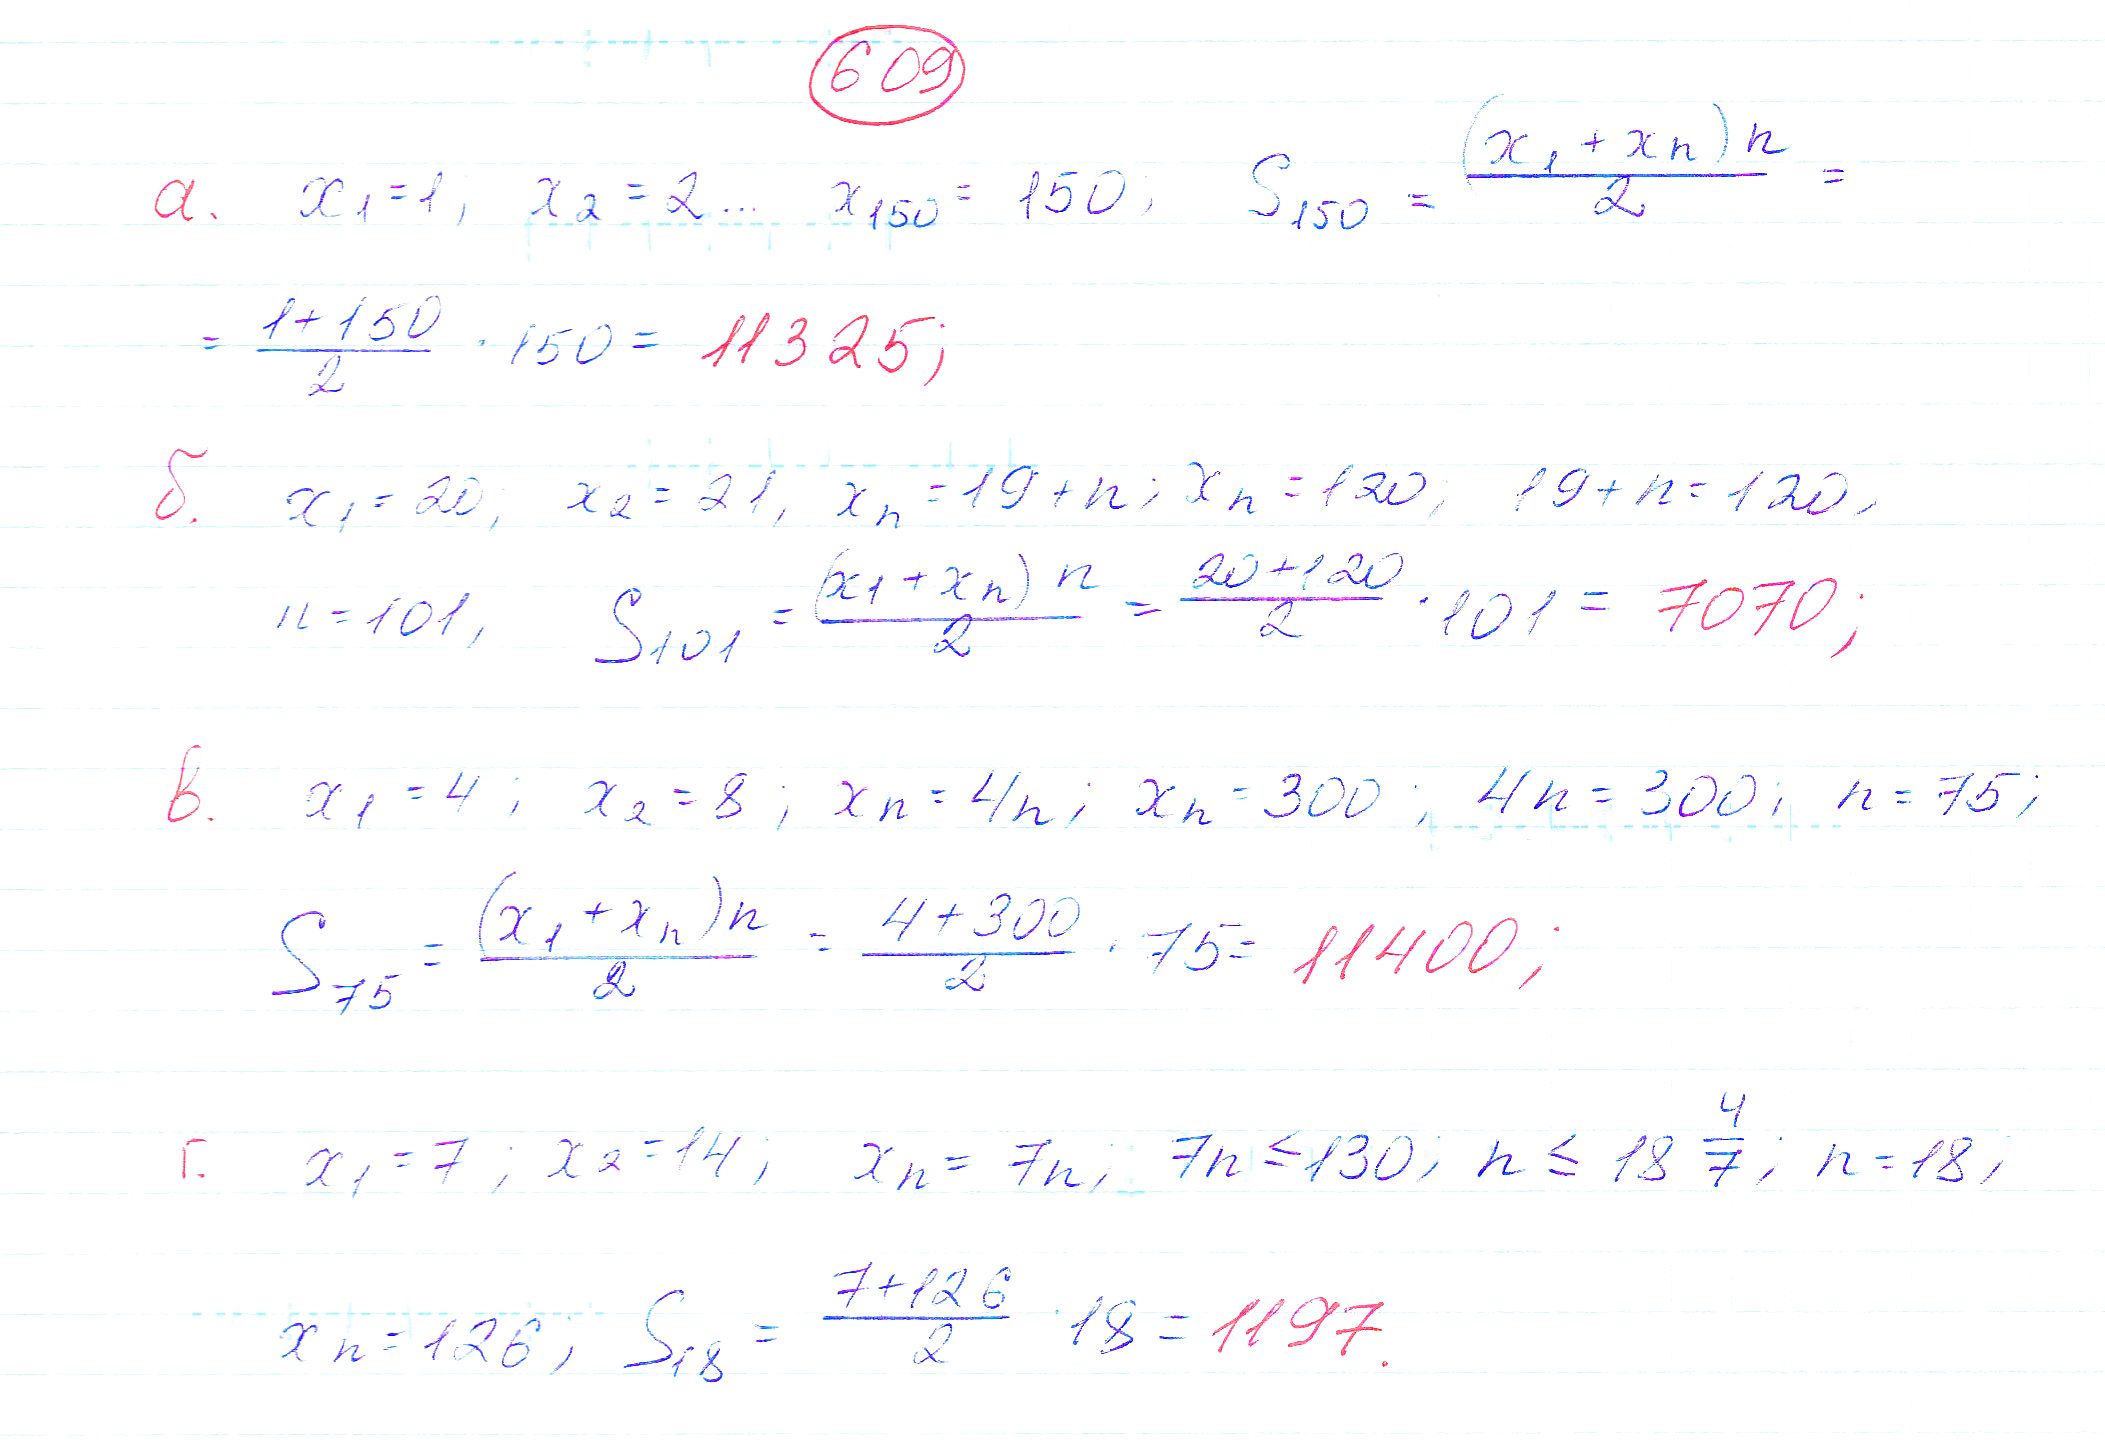 609
а. x₁ = 1; x₂ = 2... x₁₅₀ = 150; S₁₅₀ = (x₁ + xₙ)n / 2 =
= (1 + 150) / 2 · 150 = 11325;
б. x₁ = 20; x₂ = 21, xₙ = 19 + n; xₙ = 120; 19 + n = 120,
n = 101, S₁₀₁ = (x₁ + xₙ) n / 2 = (20 + 120) / 2 · 101 = 7070;
в. x₁ = 4; x₂ = 8; xₙ = 4n; xₙ = 300; 4n = 300; n = 75;
S₇₅ = (x₁ + xₙ)n / 2 = (4 + 300) / 2 · 75 = 11400;
г. x₁ = 7; x₂ = 14; xₙ = 7n; 7n ≤ 130; n ≤ 18 4/7; n = 18;
xₙ = 126; S₁₈ = (7 + 126) / 2 · 18 = 1197.